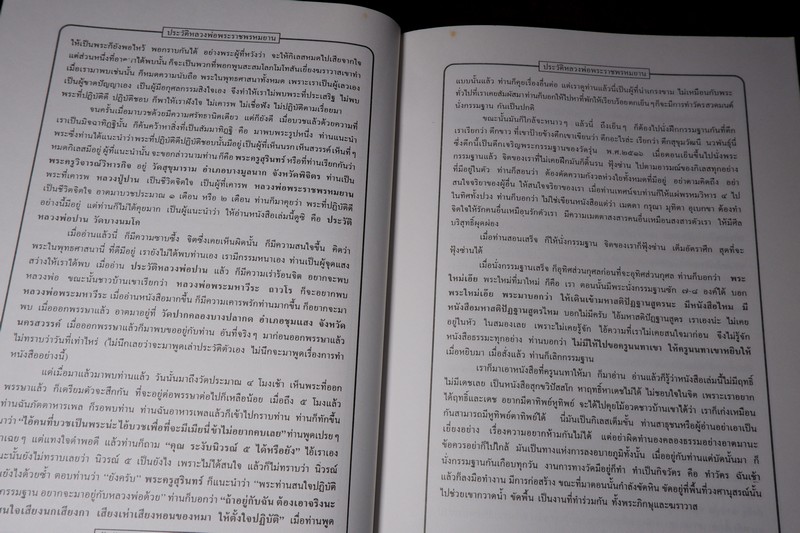 ประวัติหลวงพ่อพระราชพรหมยาน
ให้เป็นพระก็ยังพอไหว้ พอกราบกันได้ อย่างพระผู้ที่หวังว่า จะให้กิเลสหมดไปเสียจากใจ
แต่ส่วนหนึ่งที่อาตมาได้พบนั้น ก็จะเป็นพวกที่พอกพูนสะสมโลภโมโทสันเยี่ยงฆราวาสเขาทำ
เมื่อเรามาพบเช่นนั้น ก็หมดความนับถือ พระในพุทธศาสนาทั้งหมด เพราะเราเป็นผู้เลวเอง
เป็นผู้ขาดปัญญาเอง เป็นผู้มีอกุศลกรรมสิงใจเอง จึงทำให้เราไม่พบพระที่ประเสริฐ ไม่พบ
พระที่ปฏิบัติดี ปฏิบัติชอบ ก็พาให้เราฝังใจ ไม่เคารพ ไม่เชื่อฟัง ไม่ปฏิบัติตามเรื่อยมา
จนครั้นเมื่อมาบวชด้วยมีความศรัทธานิดเดียว แต่ก็ยังดี เมื่อบวชแล้วด้วยความที่
เราเป็นมิจฉาทิฏฐินั้น ก็ค้นคว้าหาสิ่งที่เป็นสัมมาทิฏฐิ คือ มาพบพระรูปหนึ่ง ท่านแนะนำ
พระซึ่งท่านได้แนะนำว่าพระที่ปฏิบัติดีปฏิบัติชอบนั้นมีอยู่ เป็นผู้ที่เห็นนรกเห็นสวรรค์ เห็นที่ๆ
หมดกิเลสมีอยู่ ผู้ที่แนะนำนั้น จะขอกล่าวนามท่าน ก็คือ พระครูสุรินทร์ หรือที่ท่านเรียกกันว่า
พระครูวิจารณ์วิหารกิจ อยู่ วัดสุขุมาราม อำเภอบางมูลนาก จังหวัดพิจิตร ท่านเป็น
พระที่เคารพ หลวงปู่ปาน เป็นชีวิตจิตใจ เป็นผู้ที่เคารพ หลวงพ่อพระราชพรหมยาน
เป็นชีวิตจิตใจ อาตมาบวชประมาณ ๑ เดือน หรือ ๒ เดือน ท่านก็มาคุยว่า พระที่ปฏิบัติดี
อย่างนี้มีอยู่ แต่ท่านก็ไม่ได้คุยมาก เป็นผู้แนะนำว่า ให้อ่านหนังสือเล่มนี้ดูซิ คือ ประวัติ
หลวงพ่อปาน วัดบางนมโค
เมื่ออ่านแล้วนี่ ก็มีความซาบซึ้ง จิตซึ่งเคยเห็นผิดนั้น ก็มีความสนใจขึ้น คิดว่า
พระในพุทธศาสนานี่ ที่ดีมีอยู่ เรายังไม่ได้พบท่านเอง เรามีกรรมหนาเอง ท่านเป็นผู้จุดแสง
สว่างให้เราได้พบ เมื่ออ่าน ประวัติหลวงพ่อปาน แล้ว ก็มีความเร่าร้อนจิต อยากจะพบ
หลวงพ่อ ขณะนั้นชาวบ้านเขาเรียกว่า หลวงพ่อพระมหาวีระ ถาวโร ก็จะอยากพบ
หลวงพ่อพระมหาวีระ เมื่ออ่านหนังสือมากขึ้น ก็มีความเคารพรักท่านมากขึ้น ก็อยากจะมา
พบ เมื่อออกพรรษาแล้ว อาตมาอยู่ที่ วัดปากคลองบางปลากด อำเภอชุมแสง จังหวัด
นครสวรรค์ เมื่อออกพรรษาแล้วก็มาพบขออยู่กับท่าน อันที่จริงๆ มาก่อนออกพรรษาแล้ว
ไม่ทราบว่าวันที่เท่าไหร่ (ไม่นึกเลยว่าจะมาพูดเล่าประวัติตัวเอง ไม่นึกจะมาพูดเรื่องการทำ
หนังสืออย่างนี้)
แต่เมื่อมาแล้วมาพบท่านแล้ว วันนั้นมาถึงวัดประมาณ ๔ โมงเช้า เห็นพระที่ออก
พรรษาแล้ว ก็เตรียมตัวจะสึกกัน ที่จะอยู่ต่อพรรษาต่อไปก็เหลือน้อย เมื่อถึง ๕ โมงแล้ว
ท่านฉันภัตตาหารเพล ก็รอพบท่าน ท่านฉันอาหารเพลแล้วก็เข้าไปกราบท่าน ท่านก็ทักขึ้น
มาว่า “ไอ้คนที่บวชเป็นพระน่ะ ไอ้บวชเพื่อที่จะมีเมียนี่ข้าไม่อยากคบเลย” ท่านพูดเปรยๆ
าเฉยๆ แต่แทงใจดำพอดี แล้วท่านก็ถาม “คุณ ระงับนิวรณ์ ๕ ได้หรือยัง” ไอ้เราเอง
ะนั้นยังไม่ทราบเลยว่า นิวรณ์ ๕ เป็นยังไง เพราะไม่ได้สนใจ แล้วก็ไม่ทราบว่า นิวรณ์
ยังไงด้วยซ้ำ ตอบท่านว่า “ยังครับ” พระครูสุรินทร์ ก็แนะนำว่า “พระท่านสนใจปฏิบัติ
กรรมฐาน อยากจะมาอยู่กับหลวงพ่อด้วย” ท่านก็บอกว่า “ถ้าอยู่กับฉัน ต้องเอาจริงนะ
สนใจเสียงนกเสียงกา เสียงเห่าเสียงหอนของหมา ให้ตั้งใจปฏิบัติ” เมื่อท่านพูด
ประวัติหลวงพ่อพระราชพรหมยาน
แบบนั้นแล้ว ท่านก็คุยเรื่องอื่นต่อ แต่เราดูท่านแล้วนี่เป็นผู้ที่น่าเกรงขาม ไม่เหมือนกับพระ
ทั่วไปที่เราเคยสัมผัสมา ท่านก็บอกให้ไปหาที่พักให้เรียบร้อย ตกเย็นๆ ก็จะมีการทำวัตรสวดมนต์
นั่งกรรมฐาน กันเป็นปกติ
ขณะนั้นมันก็ใกล้จะหนาวๆ แล้วนี่ ถึงเย็นๆ ก็ต้องไปนั่งฝึกกรรมฐานกันที่ตึก
เราเรียกว่า ตึกขาว ที่เขาป้ายข้างตึกเขาเขียนว่า ตึกอะไรล่ะ เรียกว่า ตึกสุขุมวัฒน์ นวพันธุ์นี่
ซึ่งตึกนี้เป็นตึกเจริญพระกรรมฐานของวัดรุ่น พ.ศ.๒๕๑๖ เมื่อตอนเย็นขึ้นไปนั่งพระ
กรรมฐานแล้ว จิตของเราที่ไม่เคยฝึกมันก็ดิ้นรน ฟุ้งซ่าน ไปตามอารมณ์ของกิเลสทุกอย่าง
ที่มีอยู่ในตัว ท่านก็สอนว่า ต้องตัดความกังวลห่วงใยทั้งหมดที่มีอยู่ อย่าตามคิดถึง อย่า
สนใจจริยาของผู้อื่น ให้สนใจจริยาของเรา เมื่อท่านเทศน์จบท่านก็ให้แผ่พรหมวิหาร ๔ ไป
ในทิศทั้งปวง ท่านก็บอกว่า ไม่ใช่เขียนหนังสือแต่ว่า เมตตา กรุณา มุทิตา อุเบกขา ต้องทำ
จิตใจให้รักคนอื่นเหมือนรักตัวเรา มีความเมตตาสงสารคนอื่นเหมือนสงสารตัวเรา ให้มีศีล
บริสุทธิ์ผุดผ่อง
เมื่อท่านสอนเสร็จ ก็ให้นั่งกรรมฐาน จิตของเราก็ฟุ้งซ่าน เต็มอัตราศึก สุดที่จะ
ฟุ้งซ่านได้
เมื่อนั่งกรรมฐานเสร็จ ก็อุทิศส่วนกุศลก่อนที่จะอุทิศส่วนกุศล ท่านก็บอกว่า พระ
ใหม่เอ๊ย พระใหม่ที่มาใหม่ ก็คือ เรา ตอนนั้นมีพระนั่งกรรมฐานซัก ๗-๘ องค์ได้ บอก
พระใหม่เอ๊ย พระมาบอกว่า ให้เดินเข้ามหาสติปัฏฐานสูตรนะ มีหนังสือไหม มี
หนังสือมหาสติปัฏฐานสูตรไหม บอกไม่มีครับ ไอ้มหาสติปัฏฐานสูตร เราเองน่ะ ไม่เคย
อยู่ในหัว ในสมองเลย เพราะไม่เคยรู้จัก ไอ้ความที่เราไม่เคยสนใจมาก่อน จึงไม่รู้จัก
หนังสือธรรมะทุกอย่าง ท่านก็บอกว่า ไม่มีให้ไปขอครูนนทาเขา ให้ครูนนทาเขาหยิบให้
เมื่อหยิบมา เมื่อสั่งแล้ว ท่านก็เลิกกรรมฐาน
เราก็มาเอาหนังสือที่ครูนนทาให้มา ก็มาอ่าน อ่านแล้วก็รู้ว่าหนังสือเล่มนี้ไม่มีฤทธิ์
ไม่มีเดชเลย เป็นหนังสือสุกขวิปัสสโก หาฤทธิ์หาเดชไม่ได้ ไม่ชอบใจในจิต เพราะเราอยาก
ได้ฤทธิ์และเดช อยากมีตาทิพย์หูทิพย์ จะได้ไปคุยโม้อวดชาวบ้านเขาได้ว่า เราก็เก่งเหมือน
กันสามารถมีหูทิพย์ตาทิพย์ได้ นี่มันเป็นกิเลสเต็มขั้น ท่านสาธุชนหรือผู้อ่านอย่าเอาเป็น
เยี่ยงอย่าง เรื่องความอยากห้ามกันไม่ได้ แต่อย่าผิดทำนองคลองธรรมอย่างอาตมานะ
ข้อควรอย่าก็ไปใกล้ มันเป็นทางแห่งการลงอบายภูมิทั้งนั้น เมื่ออยู่กับท่านแต่บัดนั้นมา ก็
นั่งกรรมฐานกันเกือบทุกวัน งานการทางวัดมีอยู่ก็ทำ ทำเป็นกิจวัตร คือ ทำวัตร ฉันเช้า
แล้วก็ลงมือทำงาน มีการก่อสร้าง ขณะที่มาตอนนั้นกำลังขัดหิน ขัดอยู่ที่พื้นที่วงศานุสรณ์นั้น
ไปช่วยเขากวาดน้ำ ขัดพื้น เป็นงานที่ทำร่วมกัน ทั้งพระภิกษุและฆราวาส